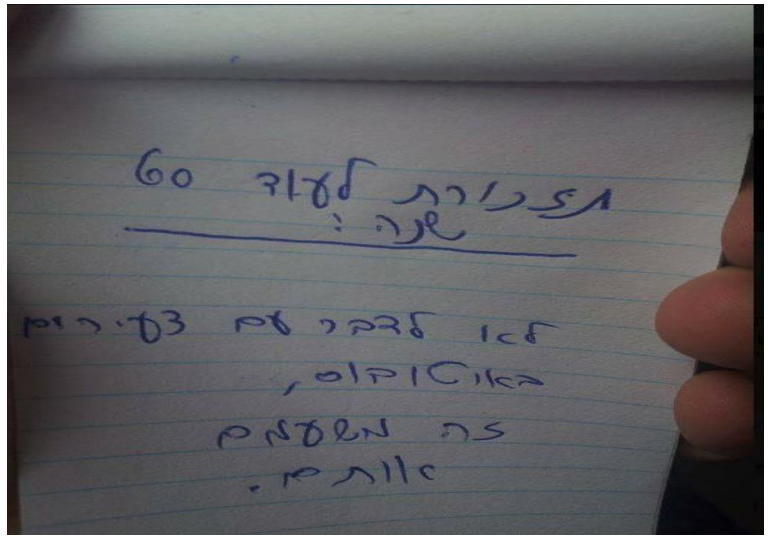 תזכורת לעוד 60
שנה:
לא לדבר עם צעירים
באוטובוס,
זה משעמם
אותם.